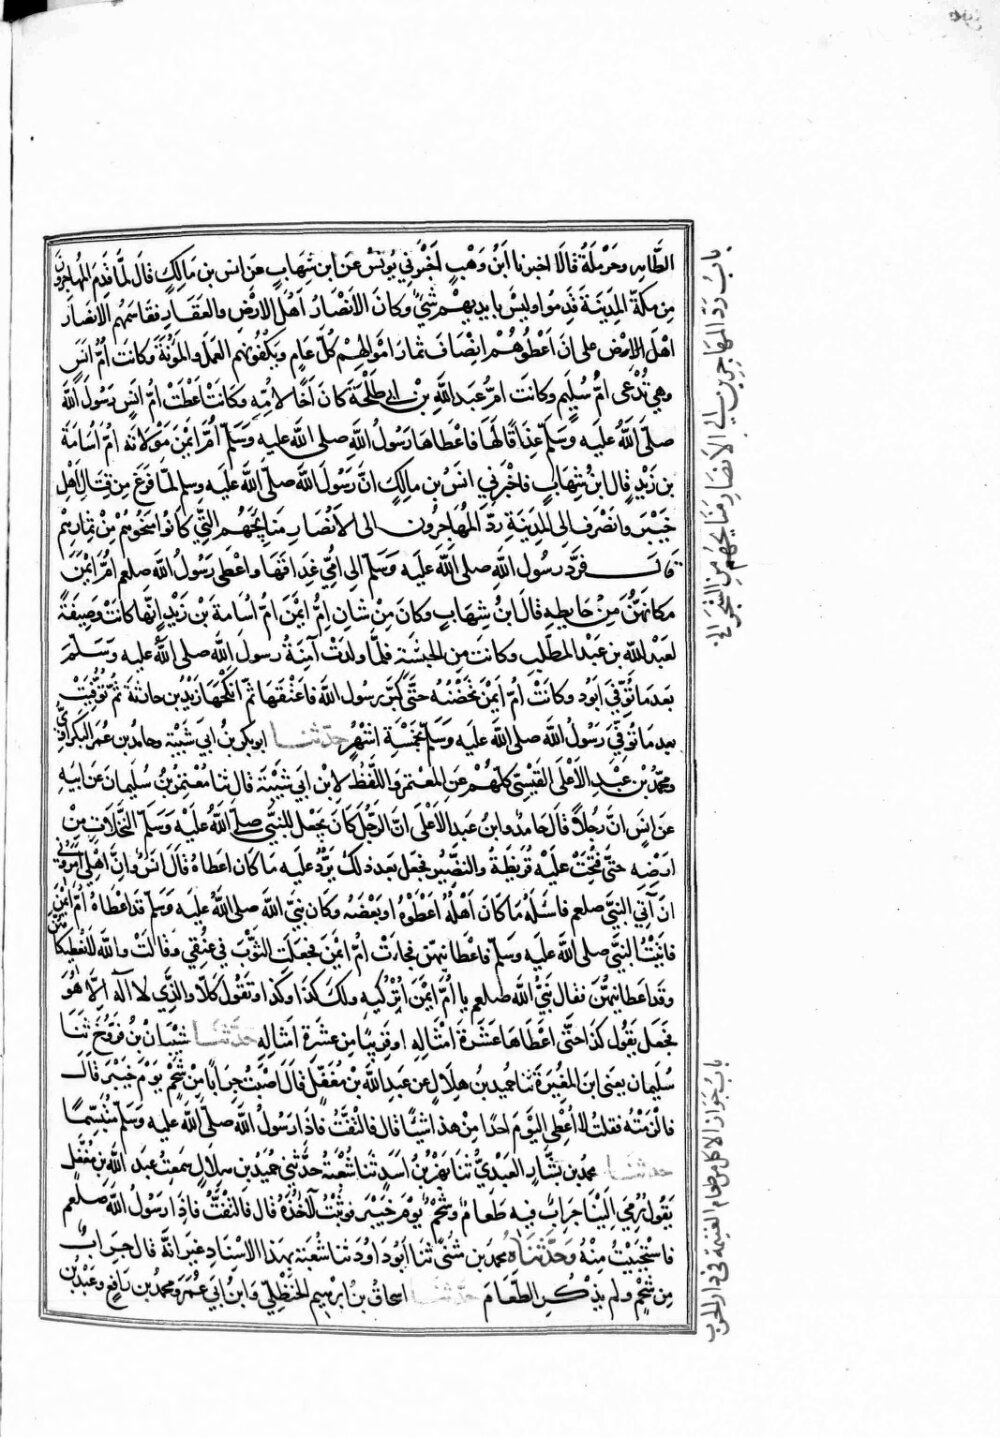 الطَّاهِرِ وحَرْمَلَةُ قَالَا اخبرنا ابْنُ وَهْبٍ أَخْبَرَنِي يُونُسُ عَنِ ابْنِ شِهَابٍ عَنْ انس بن مَالِكٍ قَالَ لَمَّا قَدِمَ المُهَاجِرُونَ
مِن مَكَّةَ المَدِينَةَ قَدِمُوا وليْسَ بِايدِيهِمْ شَيْءٌ وكَانَ الأَنْصَارُ أَهْلَ الارْضِ والعَقَارِ فقَاسَمَهُم الأَنصَارُ
اهْلَ الارْضِ على انْ أَعْطُوهُمْ انْصَافَ ثمَارَ امْوالِهِمْ كُلَّ عَامٍ ويَكْفُونَهُم العَمَلَ والمَؤُنَةَ وكَانَت أُمُّ انَسٍ
وهِي تُدْعَى امَّ سُلَيْمٍ وكَانَت امَّ عَبدِ اللَّهِ بْنِ ابي طَلْحَةَ كَانَ أَخًا لِامِّهِ وكَانَتْ اعْطَتْ امُّ انَسٍ رَسُولَ اللَّهِ
صلّى اللَّهُ عَلَيهِ وَسَلَّم عِذَاقًا لَهَا فَاعْطَاهَا رَسُولُ اللَّهِ صلى اللَّه عليه وَسَلَّم أُمَّ ايْمَنَ مَوْلَاتَهُ امَّ أُسَامَةَ
بن زَيْدٍ قال ابنُ شِهَابٍ فاخْبَرَنِي انَسُ بن مالكٍ انَّ رَسُولَ اللَّهِ صلّى اللَّهُ عَلَيهِ وسلم لَمَّا فَرَغَ مِن قِتَالِ اهْلِ
خَيْبَرَ وانْصَرَفَ الى المَدِينَةِ رَدَّ المُهَاجِرُونَ الى الانْصَارِ مَنَائِحَهُم الَّتِي كَانُوا مَنَحُوهُمْ مِنْ ثِمَارِهِمْ
قَالَ فَرَدَّ رَسُولُ اللَّهِ صلى اللَّهُ عَلَيهِ وَسَلَّم الى أُمِّي عِذَاقَهَا واعْطَى رَسُولُ اللَّهِ صلعم امَّ ايْمَنَ
مكَانَهُنَّ مِنْ حَايطِهِ قَالَ ابْنُ شِهَابٍ وكَانَ مِنْ شَانِ امِّ ايْمَنَ امِّ اسَامَةَ بْن زَيْدٍ انَّهَا كَانَتْ وَصِيفَةً
لعَبْدِ اللَّهِ بن عَبْدِ المُطَّلِبِ وكَانَت مِن الحَبَشَةِ فلَمَّا ولَدَتْ آمِنَةُ رسُولَ اللَّهِ صلى اللَّهُ عليه وَسَلَّمَ
بعدَ ما تُوُفِّيَ ابُوهُ وكَانَتْ امُّ ايْمَنَ تَحْضُنُهُ حتَّى كَبِرَ رسُولُ اللَّهِ فاعْتَقَهَا ثمَّ انْكَحَهَا زَيْدَ بن حارثَةَ ثمَّ تُوُفِّيَتْ
بعد مَا تُوُفِّيَ رَسُولُ اللَّهِ صلى اللَّهُ عليه وَسَلَّم بخَمْسَةِ اشْهُرٍ حدَّثنا ابوبكر بنُ ابي شَيْبَةَ وحامدُ بن عُمَرَ البَكْرَاوِيُّ
ومحمَّدُ بن عَبدِ الأَعْلَى القَيْسِيّ كُلُّهُمْ عَن المُعْتَمِر واللَّفْظُ لِابْنِ ابي شَيْبَةَ قَالَ ثنا مُعْتَمِرُ بْنُ سُلَيمَانَ عَن ابِيهِ
عَن انَسٍ انَّ رجُلًا وقَالَ حَامِدٌ وابنُ عبدِ الاعْلَى انَّ الرَّجُلَ كَانَ يَجْعَلُ للنَّبِيِّ صلّى اللَّهُ عَلَيْهِ وَسَلَّم النَّخَلَاتِ مِنْ
ارْضِهِ حتَّى فُتِحَتْ عَلَيْهِ قُرَيظَةُ والنَّضِيْرُ فجَعَلَ بعد ذلكَ يَرُدُّ عَليه مَا كَان اعطَاهُ قَالَ انَسٌ وَانَّ اهْلِي امَرُونِي
انْ آتِيَ النَّبِيَّ صلعم فاسْئَلَهُ مَا كَانَ أَهْلُهُ اعْطَوْهُ او بَعْضَهُ وكَان نَبِيُّ اللَّهِ صلى اللَّهُ عَلَيهِ وَسَلَّم قَدْ اعْطَاهُ امَّ ايْمَنَ
فاتَيْتُ النَّبِيَّ صلى اللَّه عَلَيهِ وَسَلَّم فَاعْطَانِيهُنَّ فجَاءَتْ امُّ ايْمَنَ فجَعَلَتِ الثَّوْبَ فِي عُنُقِي وقَالَتْ واللَّهِ لَا نُعْطِيكَاهُنَّ
وقَد اعْطَانِيهُنَّ فقال نَبِيُّ اللَّه صلعم يا امَّ ايْمَنَ اتْرُكِيهِ ولَكِ كَذَا وكَذَا وتَقُولُ كَلَّا والَّذِي لا اله الَّا هُوَ
فجَعَلَ يَقُولُ كَذَا حَتَّى اعْطَاهَا عَشَرَةَ امْثَالِهِ او قَرِيبًا مِن عَشَرَةِ امْثَالِهِ حدَّثنا شَيْبَانُ بْنُ فَرُّوخَ ثنا
سُلَيمَانُ يعنى ابنَ المُغِيرَةِ ثنا حُمَيدُ بن هِلَالٍ عن عَبدِ اللَّهِ بْنِ مُغَفَّلٍ قَالَ اصَبْتُ جِرَابًا مِنْ شَحْمٍ يَوْمَ خَيْبَرَ قَالَ
فَالْتَزَمْتُهُ فقلتُ لا أُعْطِي اليَومَ احَدًا مِنْ هذا شَيئًا قَالَ فَالْتَفَتُّ فاذَا رَسُولُ اللَّهِ صلّى اللَّهُ عَلَيهِ وَسَلَّم مُتَبَسِّمًا
حدثنا محمدُ بن بَشَّارٍ العَبْدِيُّ ثنا بَهْزُ بْنُ اسَدٍ ثنا شُعْبَةُ حدَّثَنِي حُمَيدُ بن هِلَالٍ سَمِعتُ عبدَ اللَّهِ بن مُغَفَّلٍ
يَقُولُ رُمِيَ الَيْنَا جِرَابٌ فِيهِ طَعَامٌ وشَحْمٌ يَوْمَ خَيْبَرَ فوثَبْتُ لِآخُذَهُ قَالَ فَالتَفَتُّ فاذَا رَسُولُ اللَّهِ صلعم
فاسْتَحْيَيْتُ مِنْهُ وحَدَّثَنَاهُ محمدُ بن مُثَنًّى ثنا أَبُو دَاوُدَ ثنا شُعْبَةُ بهذا الاسْنَادِ غيرَ انَّهُ قَالَ جِرَابٌ
مِنْ شَحْمٍ ولَم يَذْكُرِ الطَّعَامَ حدَّثنا اسحاقُ بنُ ابرهيم الحَنْظَلِيُّ وابنُ ابي عُمَرَ ومحمدُ بن رَافِعٍ وعَبْدُ بْنُ
بابُ رَدِّ المهَاجِرِينَ الى الأَنصَارِ مَنَائِحَهُم مِنَ الشَّجَرِ
باب جَوَاز الاكل من طعام الغنيمة في دار الحرب